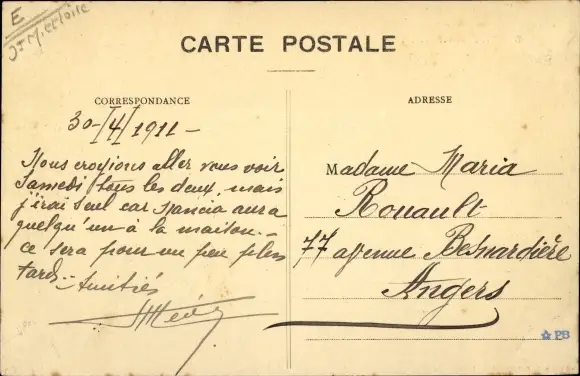 E
Dt M. et Loire
CARTE POSTALE
CORRESPONDANCE
ADRESSE
30-/4/1911-
Nous croyions aller vous voir
Samedi tous les deux, mais
j'irai seul car Mancia aura
quelqu'un à la maison.-
ce sera pour un peu plus
tard.- Amitiés
Madame Maria
Rouault
77 avenue Besnardière
Angers
PB